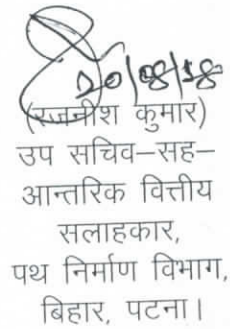 20/08/18
(रजनीश कुमार)
उप सचिव–सह–
आन्तरिक वित्तीय
सलाहकार,
पथ निर्माण विभाग,
बिहार, पटना।